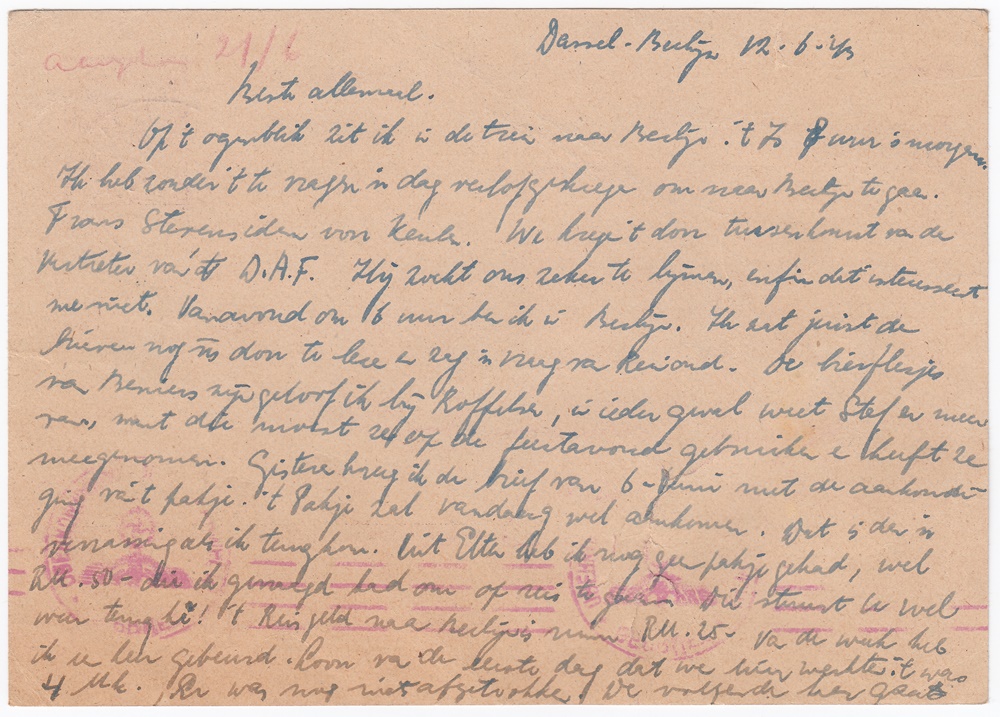 Dassel - Berlijn 12.6.43
21/6
Beste allemaal.
Op 't ogenblik zit ik in de trein naar Berlijn. 't Is uur 's morgens.
Ik heb zonder 't te vragen 'n dag verlof gekregen om naar Berlijn te gaan.
Frans Stevens idem von Keulen. We kregen 't door tussenkomst van de
Vertreter van 't D.A.F. Hij zocht ons zeker te lijmen, enfin dat interesseert
me niet. Vanavond om 6 uur ben ik in Berlijn. Ik zat juist de
brieven nog 'ns door te lezen en zag 'n vraag van Reinond. De bierflesjes
van Reniers zijn geloof ik bij Roffelsen, in ieder geval weet Stef er meer
van, want die moest ze op de feestavond gebruiken en heeft ze
meegenomen. Gisteren kreeg ik de brief van 6 Juni met de aankondi-
ging van 't pakje. 't Pakje zal vandaag wel aankomen. Dat is dan 'n
verrassing als ik terugkom. Uit Etten heb ik nog geen pakje gehad, wel
RM. 50- die ik gevraagd had om op reis te gaan. Die stuurt U wel
weer terug hè! 't Reisgeld naar Berlijn is ruim RM. 25- Van de week heb
ik voor 't eerst gebeurd. Loon van de eerste dag dat we hier werkten. 't was
4 Mk. Er was nog niets afgetrokken. De volgende keer gaat